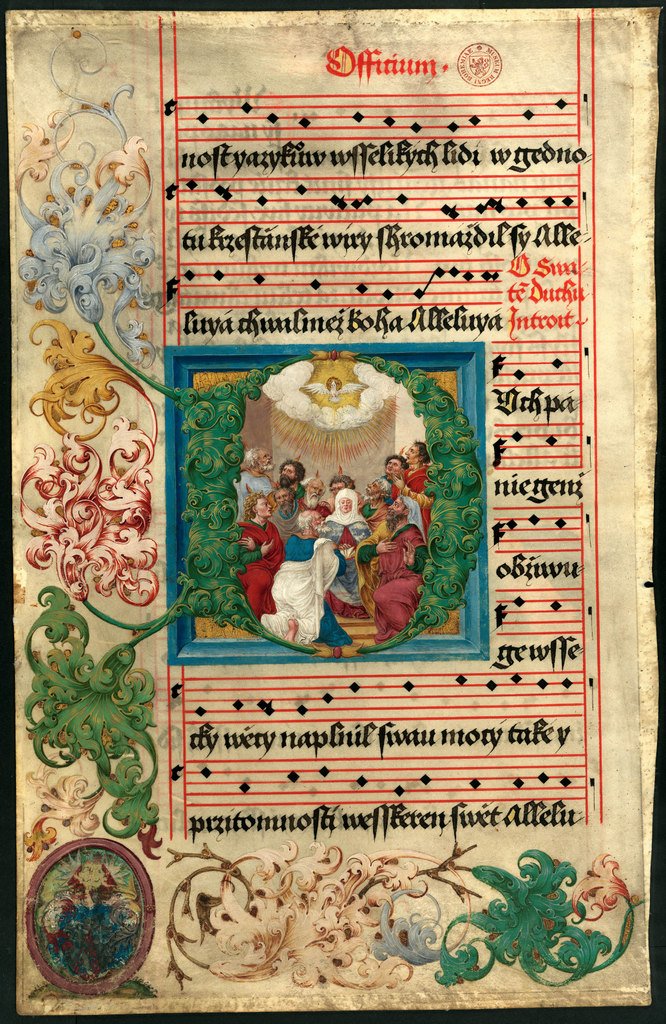 Officium.
MUSEUM REGNI BOHEMIAE
nost yazykůw wsselikych lidi w gedno-
tu krzestianské wiry shromaždil sy Alle-
luya chwalmež boha Alleluya
O Swa-
tē Duchu
Introit.
Duch pa
nie genž
obžiwu-
ge wsse-
cky wěcy naplnil swau mocy také y
przitomnosti wesskeren swět Allelu-